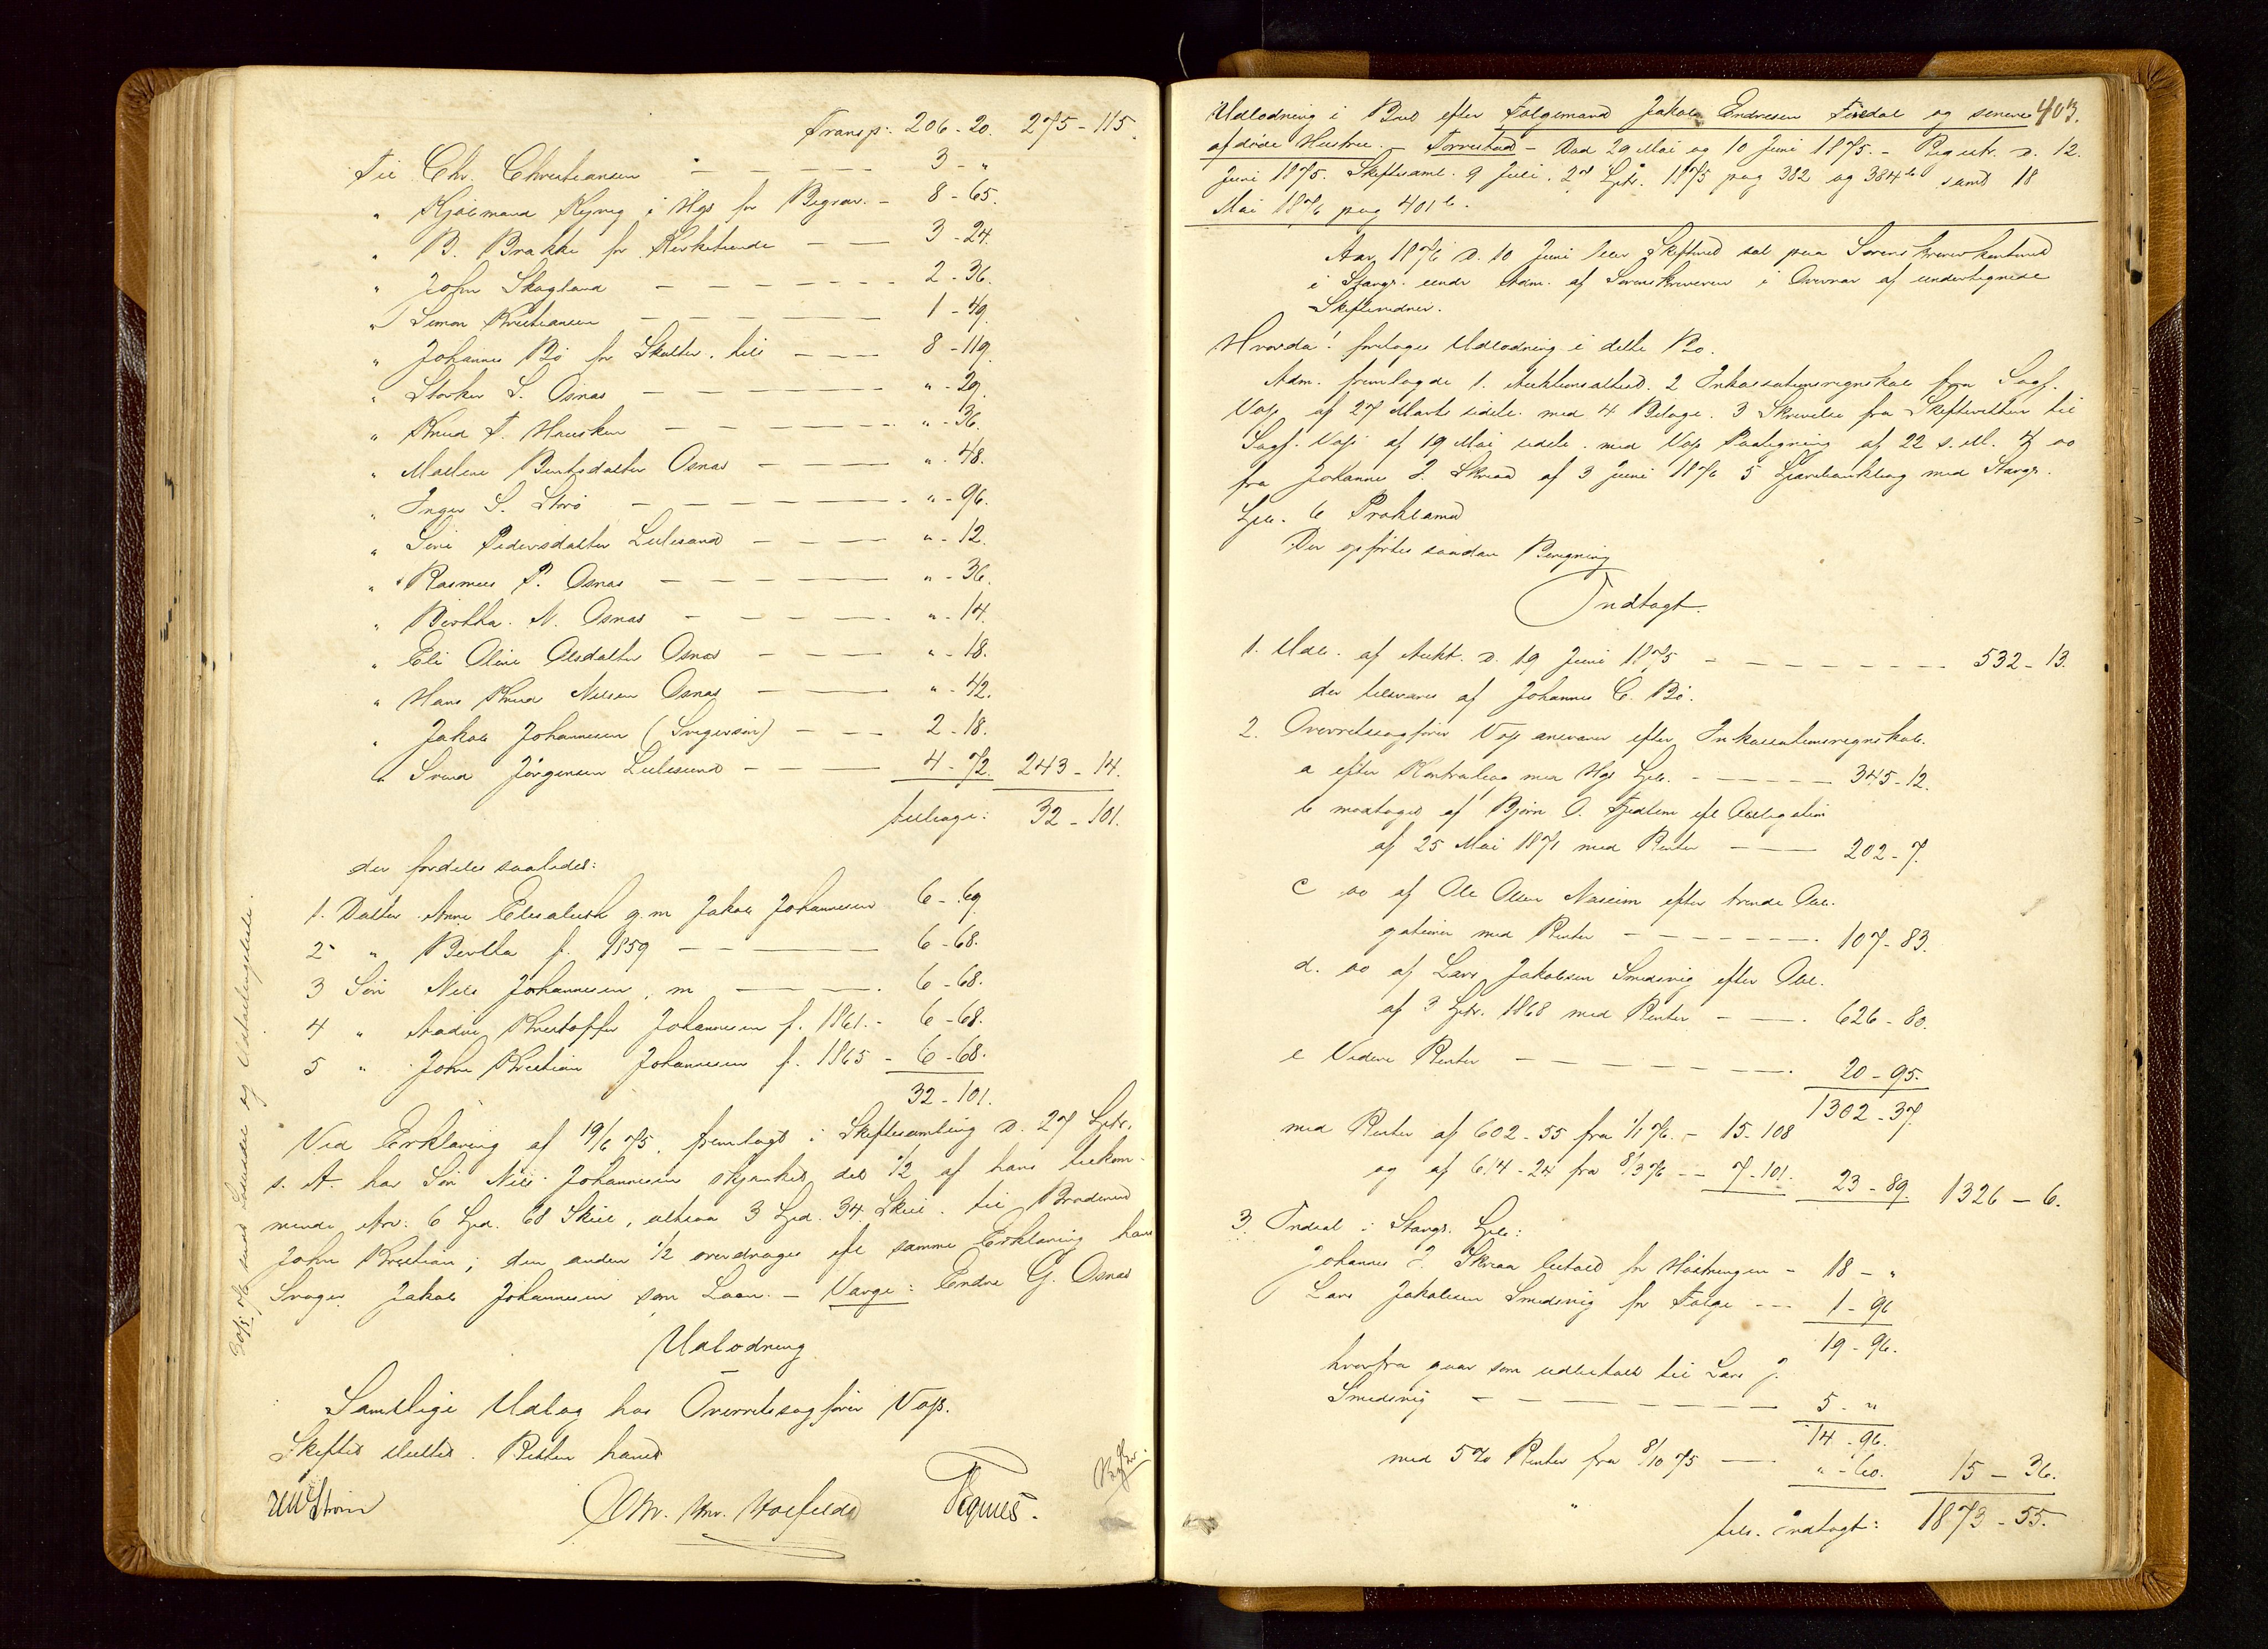 Transp: 206-20. 275-115.
Til Chr. Christiansen — — — 3-"
" Kjøbmand Kyvig i Hgs for Begrav. — 8-65.
" B. Brakke for Kirketiende — — 3-24.
" John Skogland — — — 2-36.
" Simon Kristiansen — — — 1-49.
" Johannes Bø for Skatter. tils — — 8-119.
" Storker S. Osnas — — — "-29.
" Knud T. Hausken — — — "-36.
" Malene Bentsdatter Osnas — — "-48.
" Inger S. Storø — — — "-96.
" Sini Pedersdatter Lilesund — — "-12.
" Rasmus P. Osnas — — — "-36.
" Bertha N. Osnas — — — "-14.
" Eli Oline Olsdatter Osnas — — "-18.
" Hans Knud Nilsen Osnas — — "-42.
" Jakob Johannesen (Svigersøn) — — 2-18.
" Svend Jørgensen Lilesund — — 4-72. 243-14.
tilbage: 32-101.
der fordeles saaledes:
1. Datter Anne Elisabeth g.m. Jakob Johannesen 6-69
2 " Bertha f. 1859 — — 6-68.
3 Søn Nils Johannesen, m — — 6-68.
4 " Andre Kristoffer Johannesen f. 1861.- 6-68.
5 " John Kristian Johannesen f. 1865 - 6-68.
32-101.
Ved Erklæring af 19/6 75, fremlagt i Skiftesamling d. 27 Sptr.
s. A. har Søn Nils Johannesen skjænket del 1/2 af hans tilkom-
mende Arv: 6 Spd. 68 Skill, altsaa 3 Spd. 34 Skill. til Broderen
John Kristian; den anden 1/2 overdrages efter samme Erklæring hans
Svoger Jakob Johannesen som Laan. — Værge: Endre G. Osnas
Udlodning
Samtlige Udlæg har Overretssagfører Vogt.
Skiftet sluttet. Retten hævet
Chr. Hnr. Holfeldt
403.
Udlodning i Boet efter Følgemand Jakob Endresen Førdal og senere
afdøde Hustru. — Torvestad — Død 29 Mai og 10 Juni 1875. — Registr. d. 12.
Juni 1875. Skiftesaml. 9 Juli, 27 Sptr. 1875 pag 382 og 384b samt 18
Mai 1876 pag 401b.
Aar 1876 d. 10 Juni blev Skifteret sat paa Sorenskriverkontoret
i Stavgr. under Adm. af Sorenskriveren i Overvær af undertegnede
Skiftevidner.
Hvorda! foretoges Udlodning i dette Bo.
Adm. fremlagde 1. Auktionsattest. 2 Inkassationsregnskab fra Sagf.
Vogt af 27 Marts sidstl. med 4 Bilage. 3 Skrivelse fra Skifteretten til
Sagf. Vogt af 19 Mai sidstl. med Vogts Paategning af 22 s. M. 4 do
fra Johannes J. Skraa af 3 Juni 1876 5 Sparebankbog med Stavgr.
Spb. 6 Proklama
Der opførtes saadan Beregning
Indtægt.
1. Udb. af Aukt. d. 19 Juni 1875 — — — 532-13.
der tilsvares af Johannes C. Bø.
2. Overretssagfører Vogt ansvarer efter Inkassationsregnskab.
a efter Kontrabog med Hgs Spb. — — 345-12.
b modtaget af Bjørn O. efter Obligation
af 25 Mai 1871 med Renter — — 202-7.
c do af Ole Olsen Naseim efter trende Obl.
gationer med Renter — — — 107-83.
d. do af Lars Jakobsen Smedsvig efter Obl.
af 3 Sptr. 1868 med Renter — — 626-80.
e Videre Renter — — — 20-95.
1302-37.
med Renter af 602-55 fra 1/1 76. — 15-108
og af 614-24 fra 8/3 76 — 7-101. 23-89. 1326-6.
3. Indsat i Stavgr. Spb:
Johannes J. Skraa betalt for Høstningen — 18-"
Lars Jakobsen Smedsvig for Følge — 1-96
19-96.
hvorfra gaar som udbetalt til Lars J.
Smedsvig — — — 5-"
14-96.
med 5% Renter fra 8/10 75 — "-60. 15-36.
tils. indtægt: 1873-55.
30/5 76 sendt Lodsedler og Udbetalingsliste.